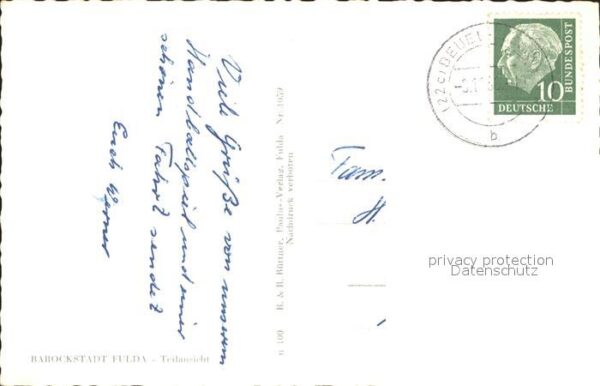 Viele Grüße von unserem
Handballspiel und einer
schönen Fahrt sendet
Euch Werner
BAROCKSTADT FULDA – Teilansicht
n 100 B. & B. Büttner, Paulus-Verlag, Fulda Nr. 1059
Nachdruck verboten
Fam.
H.
(22c) BEUEL
b
10
DEUTSCHE
BUNDESPOST
privacy protection
Datenschutz